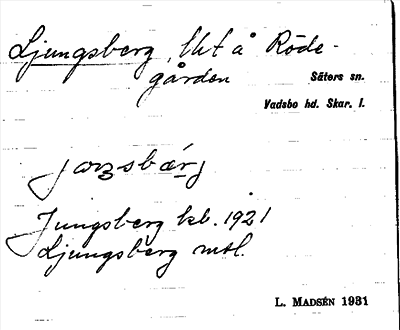 Ljungsberg, lht å Röde-
gården
Säters sn.
Vadsbo hd. Skar. l.
joŋsbærj
Jungsberg kb. 1921
Ljungsberg mtl.
L. MADSÉN 1931